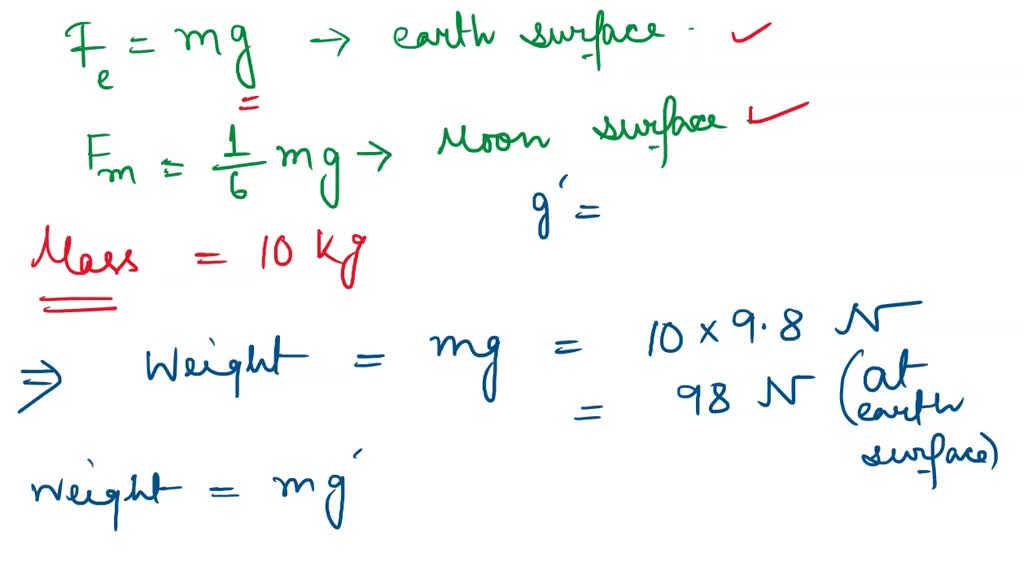 Fe = mg → earth surface
Fm = 1/6 mg → Moon surface
g' =
Mass = 10 kg
⇒ Weight = mg = 10 × 9.8 N
= 98 N (at earth surface)
Weight = mg'